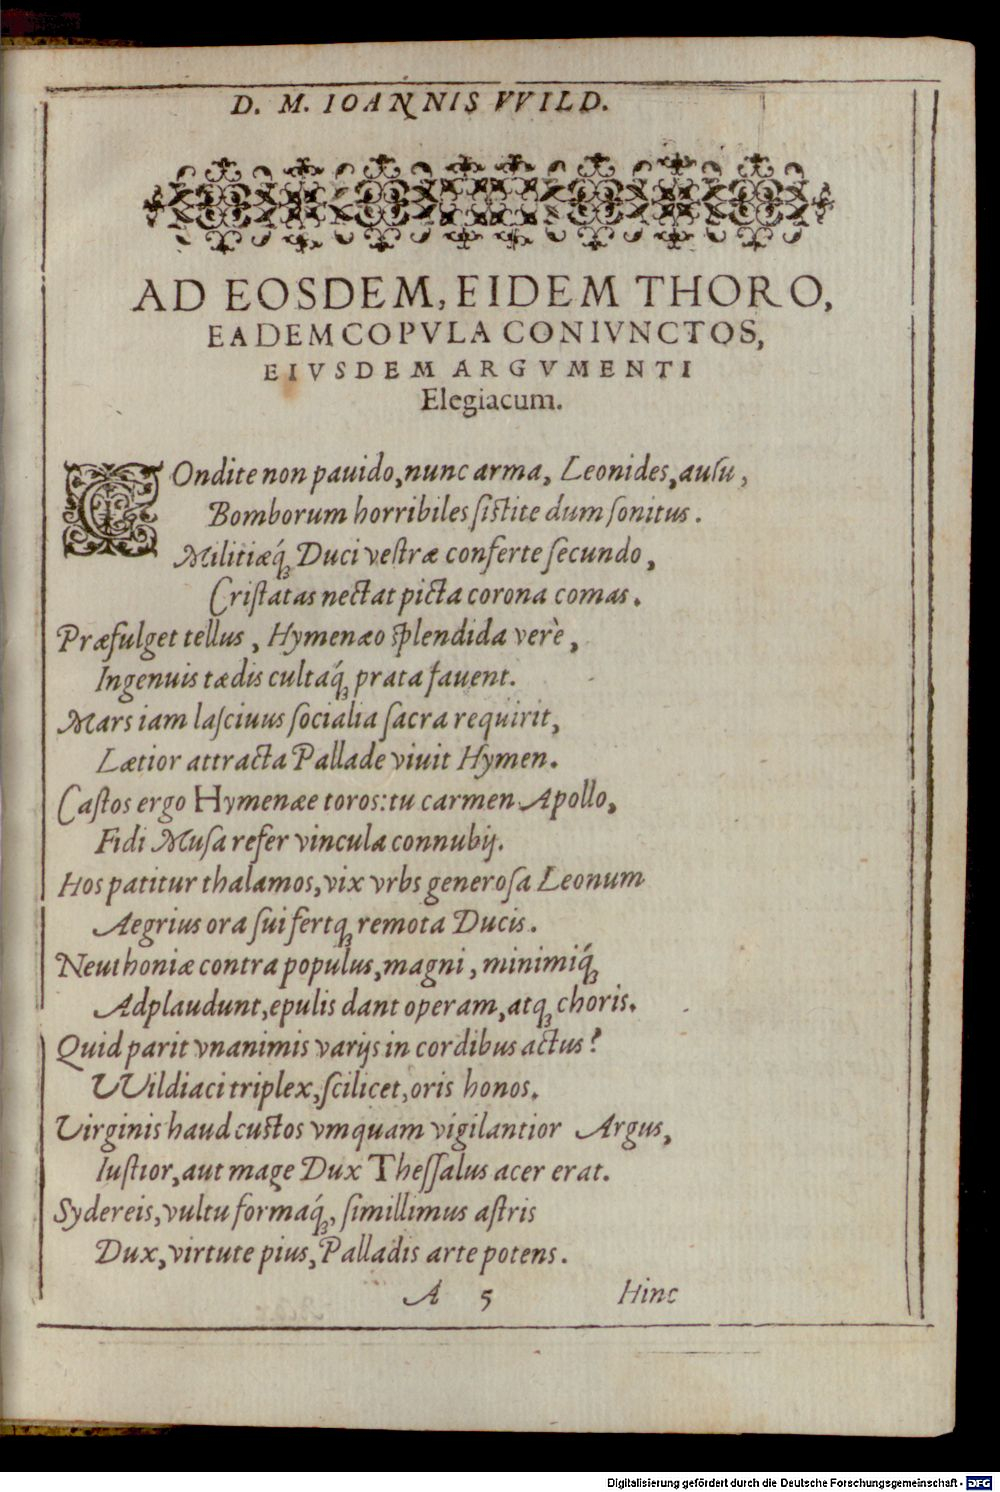 D. M. IOANNIS VVILD.
AD EOSDEM, EIDEM THORO,
EADEM COPVLA CONIVNCTOS,
EIVSDEM ARGVMENTI
Elegiacum.
COndite non pauido, nunc arma, Leonides, auſu,
Bomborum horribiles ſiſtite dum ſonitus.
Militiæq́ꝫ Duci veſtræ conferte ſecundo,
Criſtatas nectat picta corona comas.
Præfulget tellus, Hymenæo ſplendida verè,
Ingenuis tædis cultaq́ꝫ prata fauent.
Mars iam laſciuus ſocialia ſacra requirit,
Lætior attracta Pallade viuit Hymen.
Caſtos ergo Hymenæe toros: tu carmen Apollo,
Fidi Muſa refer vincula connubij.
Hos patitur thalamos, vix vrbs generoſa Leonum
Aegrius ora ſui fertqꝫ remota Ducis.
Neuthoniæ contra populus, magni, minimiq́ꝫ
Adplaudunt, epulis dant operam, atqꝫ choris.
Quid parit vnanimis varijs in cordibus actus?
VVildiaci triplex, ſcilicet, oris honos.
Virginis haud cuſtos vmquam vigilantior Argus,
Iuſtior, aut mage Dux Theſſalus acer erat.
Sydereis, vultu formaq́ꝫ, ſimillimus aſtris
Dux, virtute pius, Palladis arte potens.
A 5 Hinc
Digitalisierung gefördert durch die Deutsche Forschungsgemeinschaft - DFG